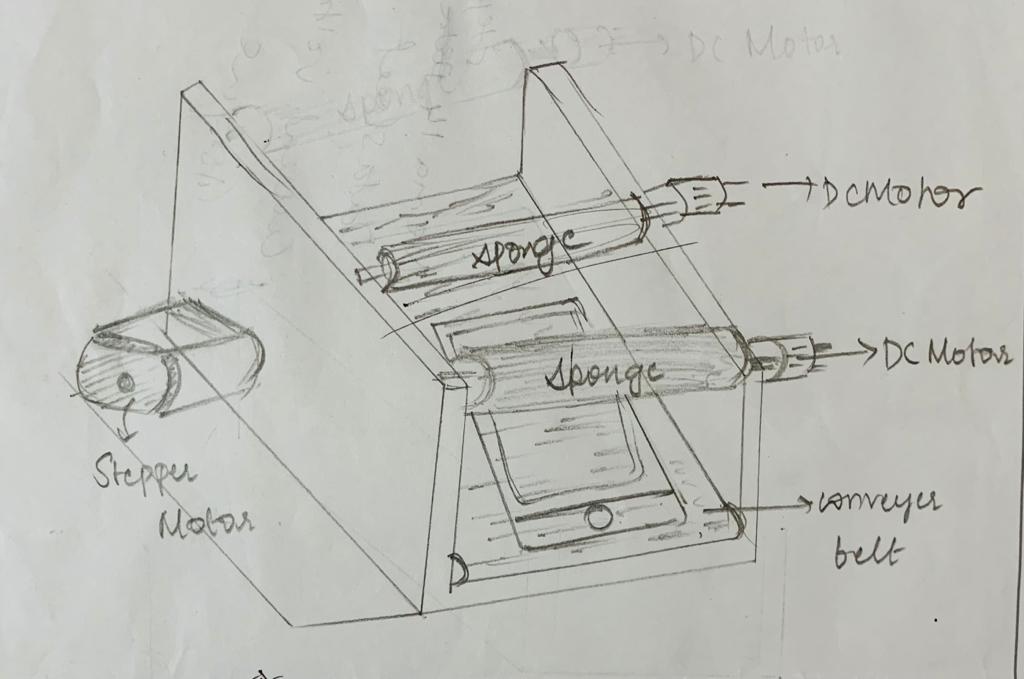 DC Motor
sponge
DC Motor
sponge
DC Motor
sponge
Stepper
Motor
conveyer
belt